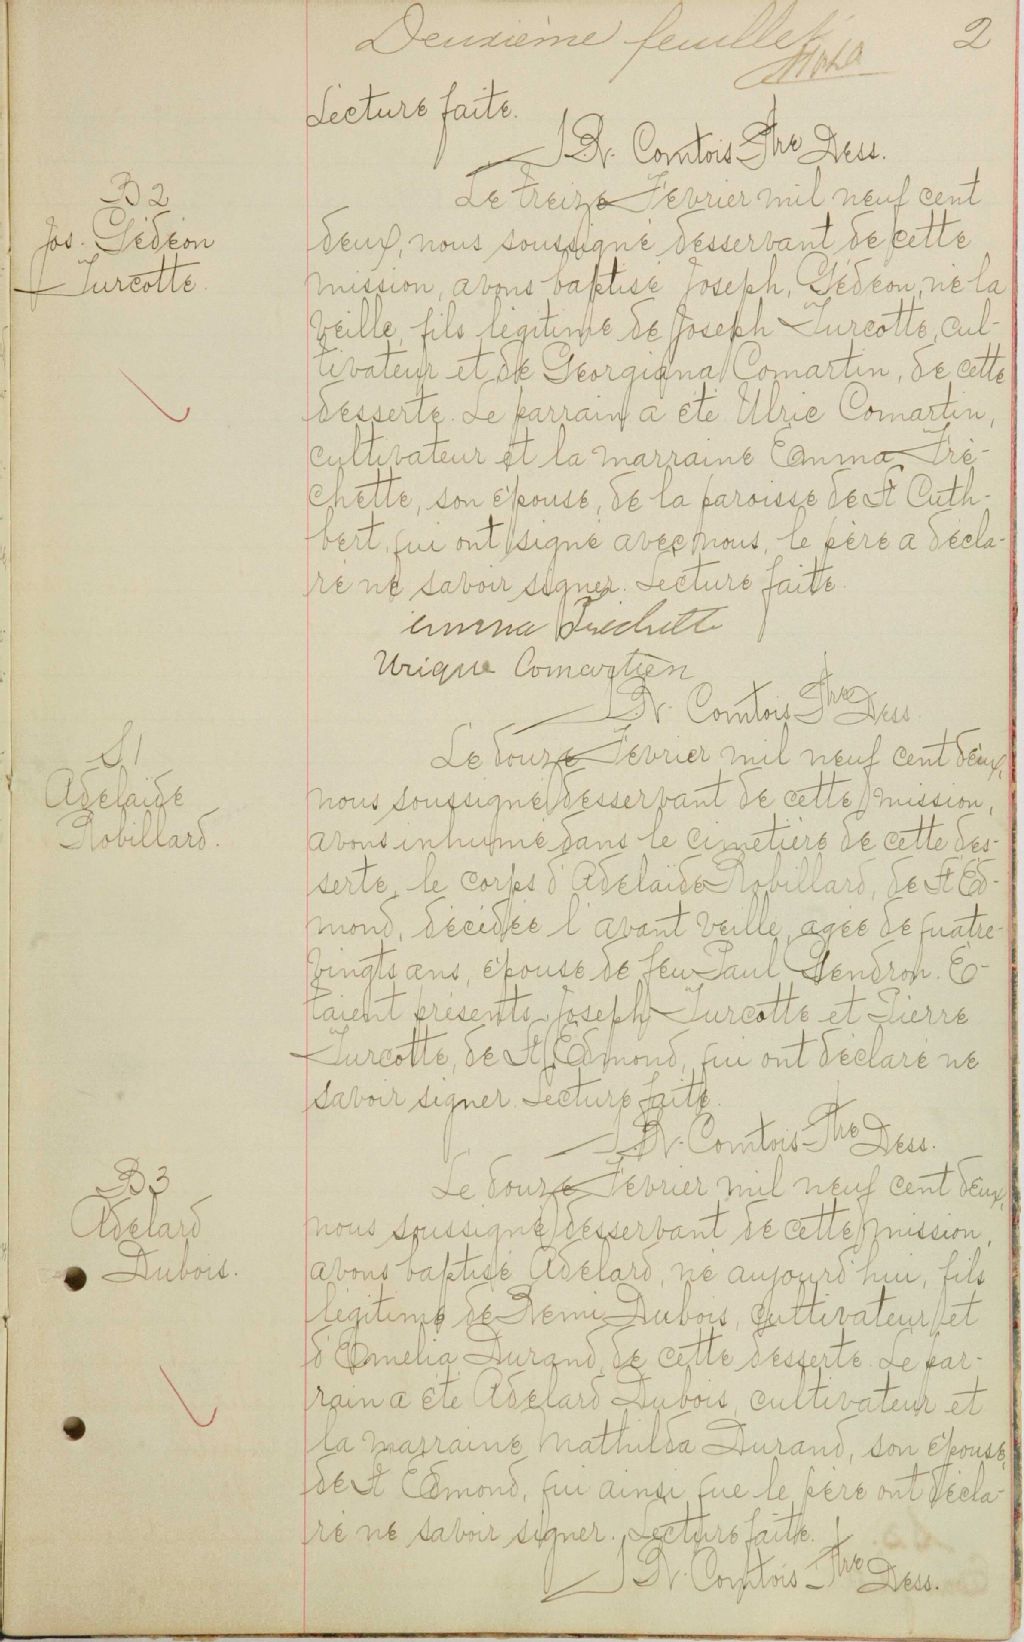 Deuxième feuillet 2
Lecture faite.
J. N. Comtois Ptre Dess.
B 2
Jos. Gédéon
Turcotte.
Le treize Février mil neuf cent
deux, nous soussigné desservant de cette
mission, avons baptisé Joseph, Gédéon, né la
veille, fils légitime de Joseph Turcotte, cul-
tivateur et de Georgianna Comartin, de cette
desserte. Le parrain a été Ulric Comartin,
cultivateur et la marraine Emma Fré-
chette, son épouse, de la paroisse de St Cuth-
bert, qui ont signé avec nous, le père a décla-
ré ne savoir signer. Lecture faite.
emma Frechette
Urique Comartien
J. N. Comtois Ptre Dess.
S. 1
Adelaide
Robillard.
Le douze Février mil neuf cent deux,
nous soussigné desservant de cette mission,
avons inhumé dans le cimetière de cette des-
serte, le corps d'Adelaïde Robillard, de St Ed-
mond, décédée l'avant veille, agée de quatre-
vingts ans, épouse de feu Paul Gendron. É-
taient présents Joseph Turcotte et Pierre
Turcotte, de St Edmond, qui ont déclaré ne
savoir signer. Lecture faite.
J. N. Comtois Ptre Dess.
B 3
Adelard
Dubois.
Le douze Février mil neuf cent deux,
nous soussigné desservant de cette mission,
avons baptisé Adelard, né aujourd'hui, fils
légitime de Rémi Dubois, cultivateur et
d'Emelia Durand, de cette desserte. Le par-
rain a été Adelard Dubois, cultivateur et
la marraine Mathilda Durand, son épouse,
de St Edmond, qui ainsi que le père ont décla-
ré ne savoir signer. Lecture faite.
J. N. Comtois Ptre Dess.